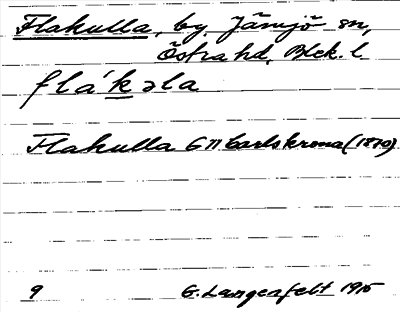 Flakulla, by, Jämjö sn,
Östra hd, Blek. l
flákəla
Flakulla G II Carlskrona (1870)
9 G. Langenfelt 1915